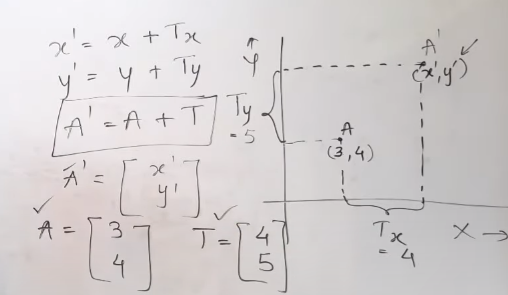 x' = x + Tx
y' = y + Ty
A' = A + T
A' = [x'
y']
A = [3
4]
T = [4
5]
Y
Ty
= 5
A'
(x', y')
A
(3, 4)
Tx
= 4
X →